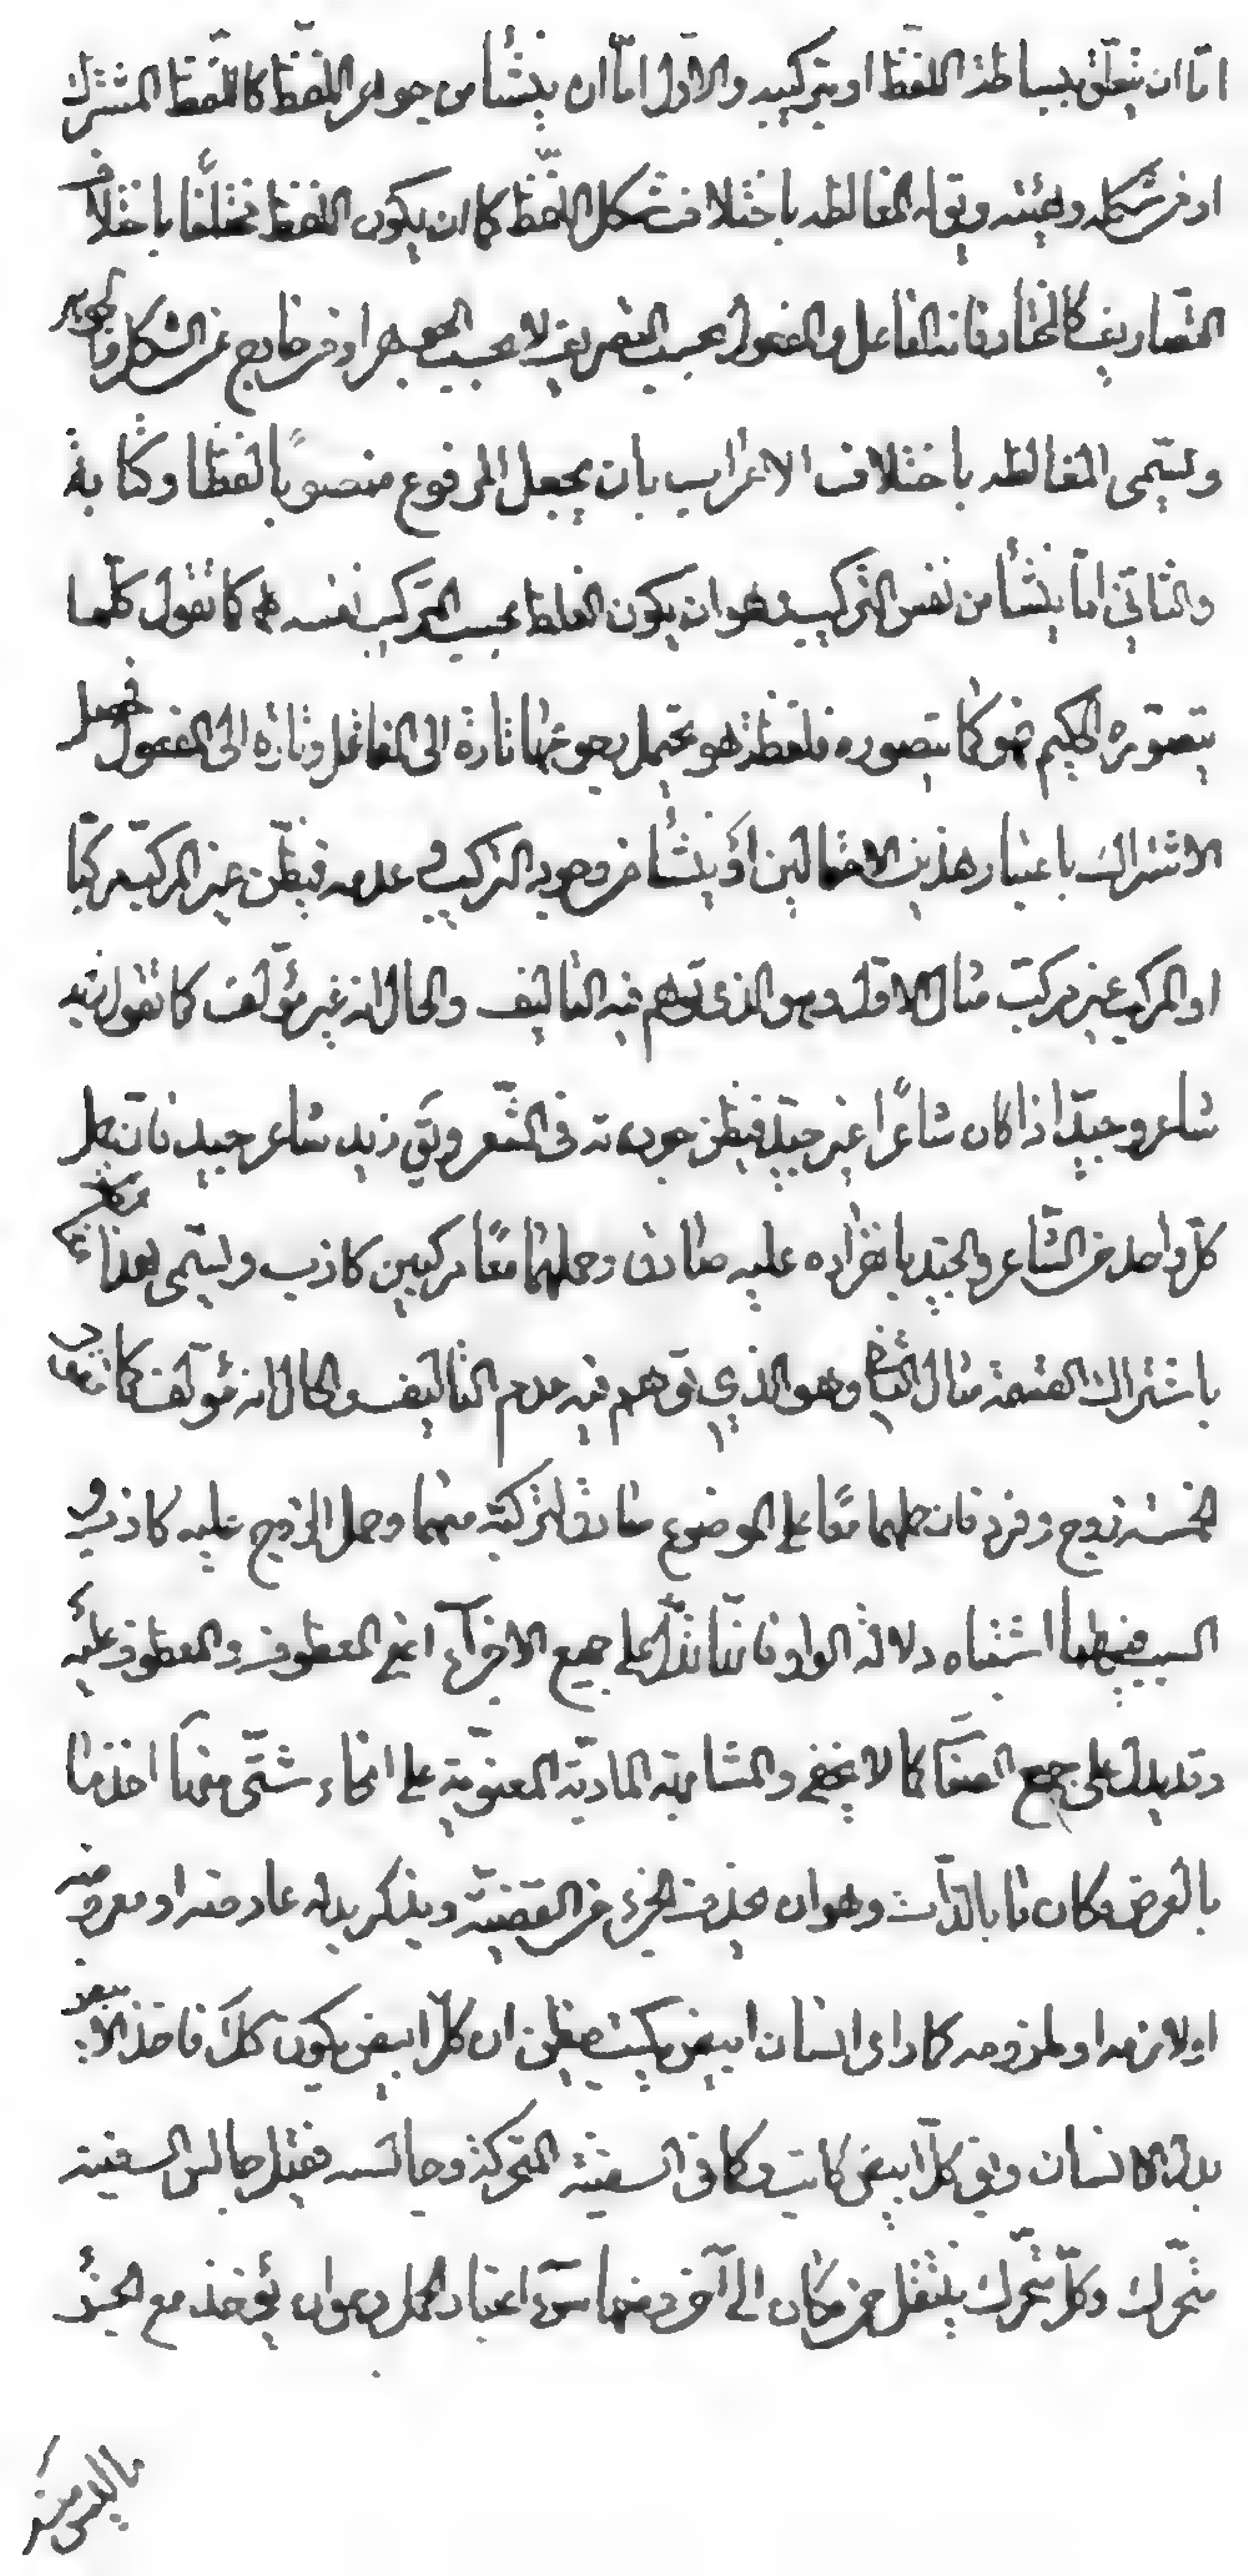 امّا ان يتعلّق ببساطة اللفظ او بتركيبه والاوّل امّا ان ينشأ من جواهر اللفظ كاللفظ المشترك
او فى شكله وهيئته ويقوله المغالطه باختلاف شكل اللفظ كما ان يكون اللفظ مختلفًا باختلاف
التصاريف كالمختار فانه الفاعل والمفعول بحسب التصريف لا بحسب الجوهر او فى خارج عن الشكل والجوهر
وتسمّى المغالطه باختلاف الاعراب بان يجعل المرفوع منصوبًا لفظا وكتابة
والثانى امّا ينشأ من نفس التركيب وهو ان يكون الغلط بحسب التركيب نفسه كما تقول كلّما
يتصوّره الحكيم فهو كما يتصوره فلفظة هو يحتمل رجوعها تارة الى الفاعل وتارة الى المفعول فحصل
الاشتراك باعتبار هذين الاحتمالين او ينشأ من وجود التركيب وعدمه فيظنّ غير المركّب مركّبًا
او المركب غير مركّب مثال الاوّل وهو الذى توهم فيه التاليف والحال انه غير مؤلّف كما تقول زيد
شاعر وجيّد اذا كان شاعرًا غير جيّد فيظن جودته فى الشّعر ويق زيد شاعر جيد فان حمل
كلّ واحد من الشّاعر والجيّد بانفراده عليه صادق وحملهما معًا مركبين كاذب وتسمّى هذا مغالطة
باشتراك القسمة مثال الثانى وهو الذي توهم فيه عدم التاليف والحال انه مؤلّف كما تقول
الخمسة زوج وفرد فان حملهما معًا على الموضوع صادق لتركّبه منهما وحمل الزوج عليه كاذب و
السبب فيهما اشتباه دلالة الواو فانّها تدلّ على جميع الاجزآء اعنى المعطوف والمعطوف عليه
وقد يدل على جميع الصفات كما لا يخفى والمشابهة الماديّة المعنويّة على انحاء شتّى منها اخذ ما
بالعرض مكان ما بالذّات وهو ان يحذف الجزء من القضيّة ويذكر بدله عارضه او معروضه
اولازمه او ملزومه كما راى انسان ابيض يكتب فيظن ان كلّ ابيض يكون كذلك فاخذ الابيض
بدل الانسان ويق كلّ ابيض كاتب وكما فى السفينة المتحركة وجالسه فقيل جالس السفينة
متحّرك وكلّ متحّرك ينتقل من مكان الى آخر ومنها سوء اعتبار الحمل وهو ان يؤخذ مع الجزء
ما ليس منه